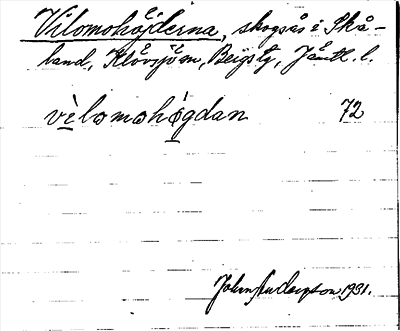 Vilomohöjderna, skogsås i Skå-
land, Klövsjö sn, Bergs tg, Jämtl. l.
vilomohøgdan 72
1931.